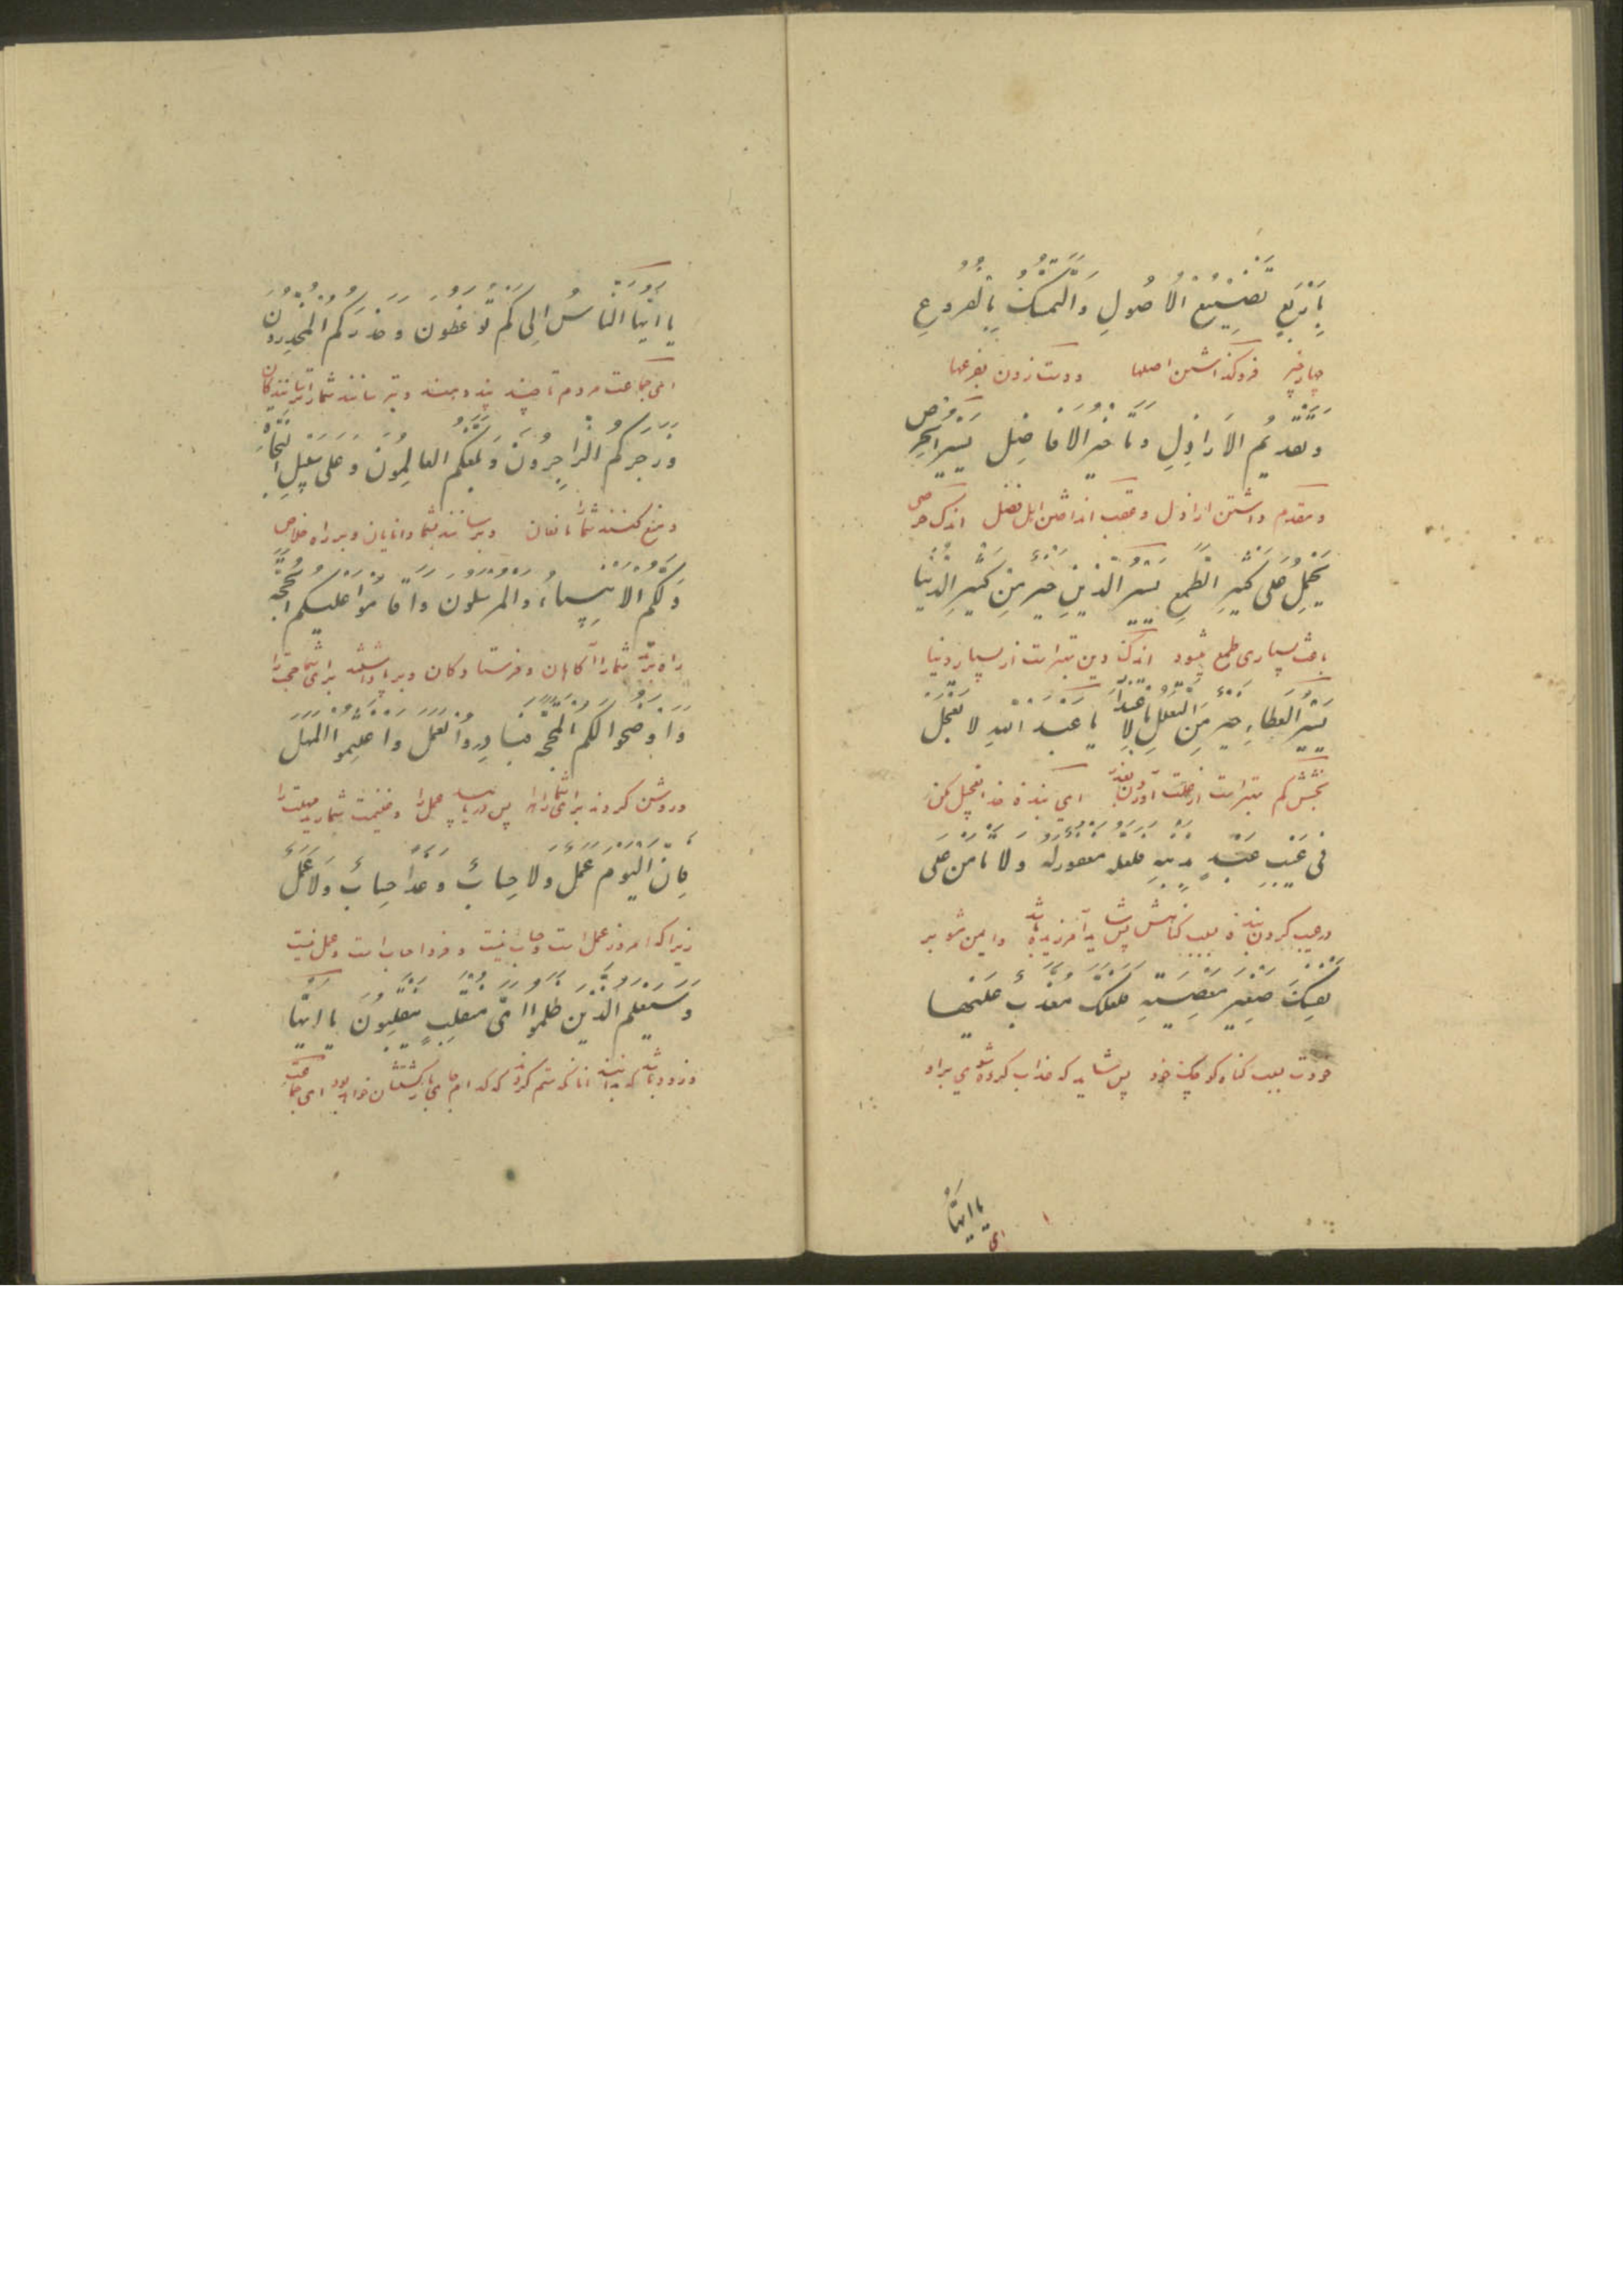 بِاَرْبَعٍ تَضْيِيْعُ الْاُصُولِ وَالتَّمَسُّكُ بِالْفُرُوعِ
چهار چیز فروگذاشتن اصلها ودست زدن بفرعها
وَتَقْدِيمُ الْاَرَاذِلِ وَتَأخِيرُ الْاَفَاضِلِ يَسِيرُ الْحِرْصِ
ومقدم داشتن اراذل وعقب انداختن اهل فضل اندک حرصی
يَحْمِلُ عَلَى كَثِيرِ الطَّمَعِ يَسِيرُ الدِّينِ خَيْرٌ مِنْ كَثِيرِ الدُّنْيَا
باعث بسیاری طمع میشود اندک دین بهتر است از بسیار دنیا
يَسِيرُ الْعَطَاءِ خَيْرٌ مِنَ التَّعَلُّلِ بِالْاِعْتِذَارِ يَا عَبْدَ اللهِ لَا تَعْجَلْ
بخشش کم بهتر است از علت آوردن بعذر ای بنده خدا تعجیل مکن
فِى عَيْبِ عَبْدٍ بِذَنْبِهِ فَلَعَلَّهُ مَغْفُورٌ لَهُ وَلَا تَأمَنْ عَلَى
در عیب کردن بنده بسبب گناهش پس شاید آمرزیده باشد وایمن مشو بر
نَفْسِكَ صَغِيرَ مَعْصِيَةٍ فَلَعَلَّكَ مُعَذَّبٌ عَلَيْهَا
خودت بسبب گناه کوچک خود پس شاید که عذاب کرده شوی براو
يا ايّها
ای
يَا اَيُّهَا النَّاسُ اِلَى كَمْ تُوْعَظُونَ وَحَذَّرَكُمُ الْمُحَذِّرُونَ
ای جماعت مردم تا چند پند دهند وبترسانند شمارا ترسانندگان
وَزَجَرَكُمُ الزَّاجِرُونَ وَبَلَّغَكُمُ الْعَالِمُونَ وَعَلَى سَبِيلِ النَّجَاةِ
ومنع کنند شمارا مانعان وبرسانند بشما دانایان وبر راه خلاص
دَلَّكُمُ الْاَنْبِيَاءُ وَالْمُرْسَلُونَ وَاَقَامُوا عَلَيْكُمُ الْحُجَّةَ
راه برند شمارا آگاهان وفرستادگان وبرپا داشتند برای شما حجت را
وَاَوْضَحُوا لَكُمُ الْمَحَجَّةَ فَبَادِرُوا الْعَمَلَ وَاغْتَنِمُوا الْمَهَلَ
وروشن کردند برای شما راه را پس دریابید عمل را وغنیمت شمارید مهلت را
فَاِنَّ الْيَوْمَ عَمَلٌ وَلَا حِسَابٌ وَغَداً حِسَابٌ وَلَا عَمَلٌ
زیرا که امروز عمل است وحساب نیست وفردا حساب است وعمل نیست
وَسَيَعْلَمُ الَّذِينَ ظَلَمُوا اَىَّ مُنْقَلَبٍ يَنْقَلِبُونَ يَا اَيُّهَا
وزود باشد که بدانند آنانکه ستم کردند که کدام جای بازگشتشان خواهد بود ای جماعت